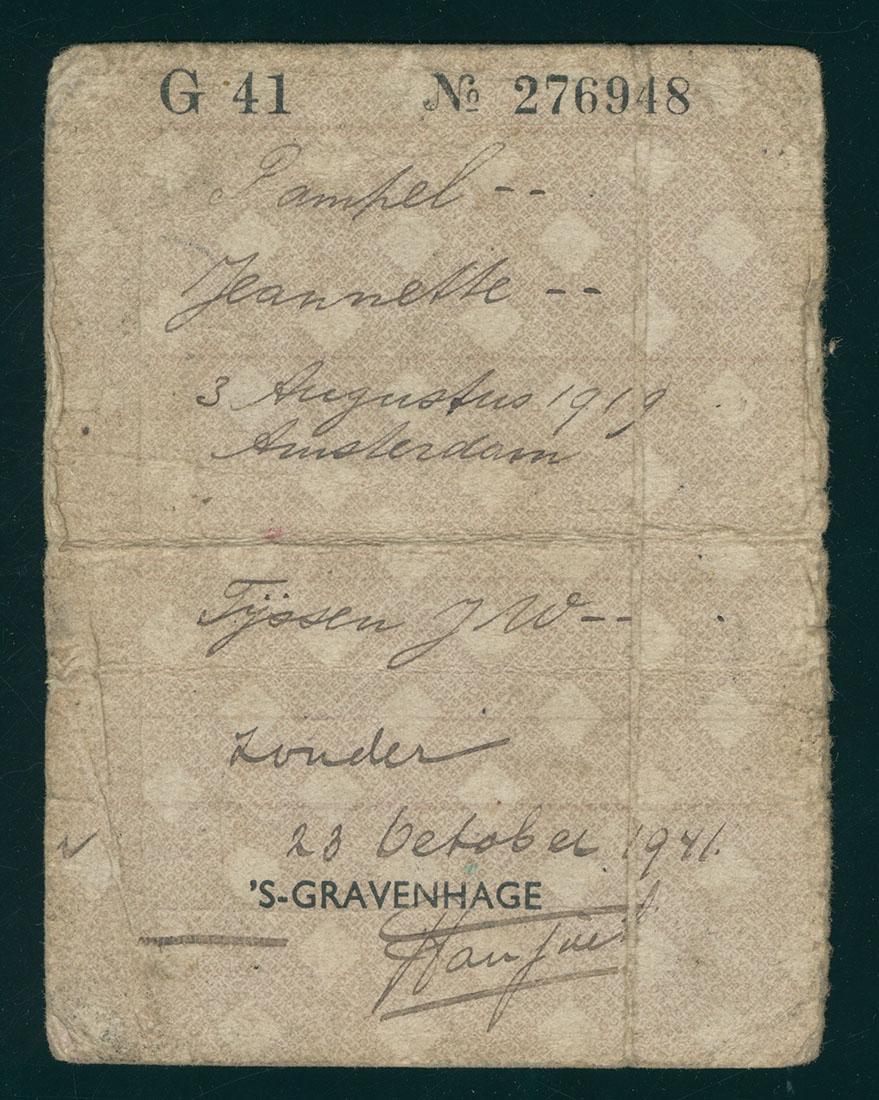 G 41 № 276948
Pampel --
Jeannette --
3 Augustus 1919
Amsterdam
Tijssen J W --
zonder
23 October 1941.
'S-GRAVENHAGE